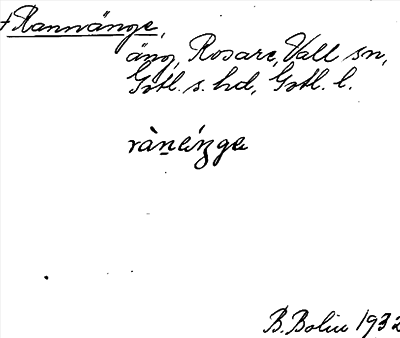 † Rannänge,
äng, Rosarve, Vall sn,
Gotl. s. hd, Gotl. l.
B. Bolin 1932